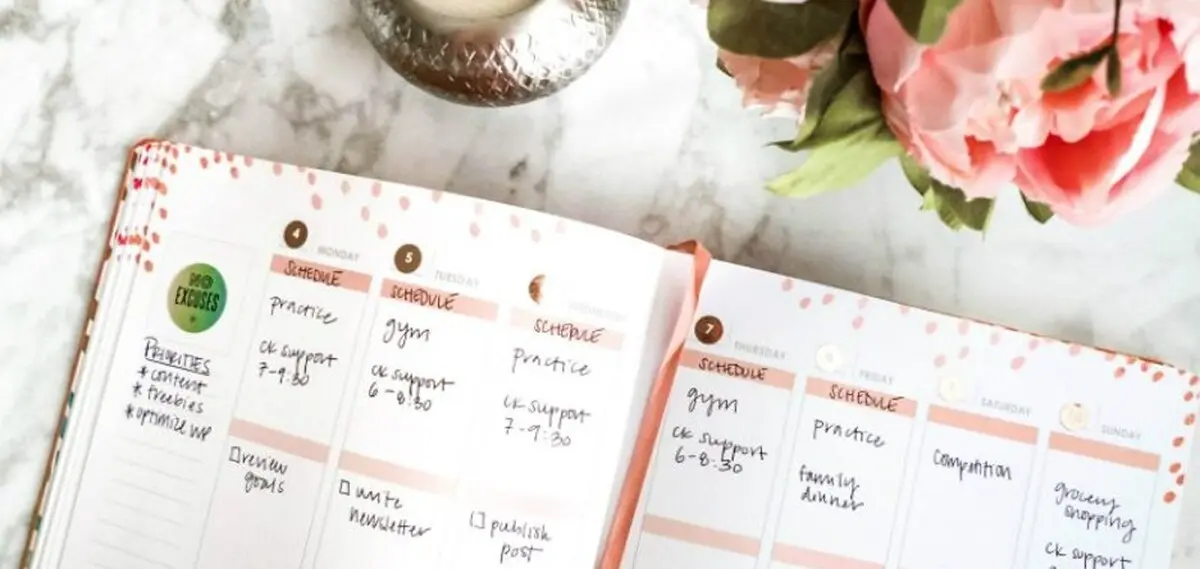 NO
EXCUSES
PRIORITIES
* content
* freebies
* optimize WP
4
MONDAY
SCHEDULE
practice
CK support
7-9:30
review
goals
5
TUESDAY
SCHEDULE
gym
CK support
6-8:30
write
newsletter
SCHEDULE
practice
CK support
7-9:30
publish
post
7
THURSDAY
SCHEDULE
gym
CK support
6-8:30
FRIDAY
SCHEDULE
practice
family
dinner
SATURDAY
Competition
SUNDAY
grocery
shopping
CK support